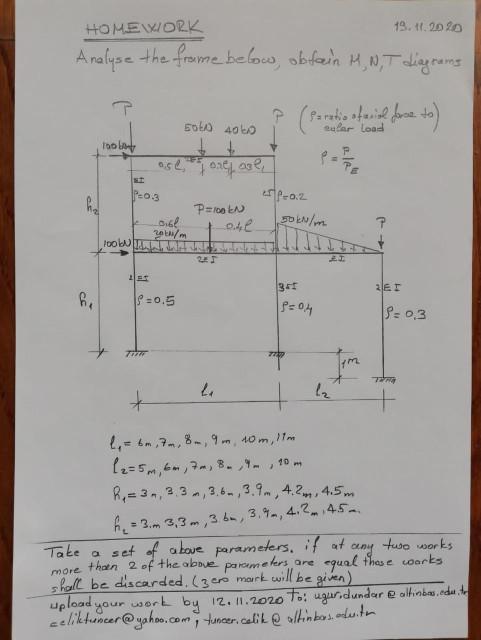 HOMEWORK 19.11.2020
Analyse the frame below, obtain M, N, T diagrams
P P (ρ = ratio of axial force to
euler load)
50kN 40kN
ρ = P/PE
100kN
0.5l1 2EI 0.2l1 0.3l1
EI EI
h2 ρ=0.3 ρ=0.2
P=100kN 50kN/m P
0.6l 0.4l
20kN/m
100kN
2EI EI
2EI 3EI 2EI
h1 ρ=0.5 ρ=0.4 ρ=0.3
1m
l1 l2
l1 = 6m, 7m, 8m, 9m, 10m, 11m
l2 = 5m, 6m, 7m, 8m, 9m, 10m
h1 = 3m, 3.3m, 3.6m, 3.9m, 4.2m, 4.5m
h2 = 3.m 3,3m, 3.6m, 3.9m, 4.2m, 4.5m.
Take a set of above parameters. if at any two works
more than 2 of the above parameters are equal those works
shall be discarded. (zero mark will be given)
upload your work by 12.11.2020 To: ugur.dundar@altinbas.edu.tr
celiktuncer@yahoo.com, tuncer.celik@altinbas.edu.tr